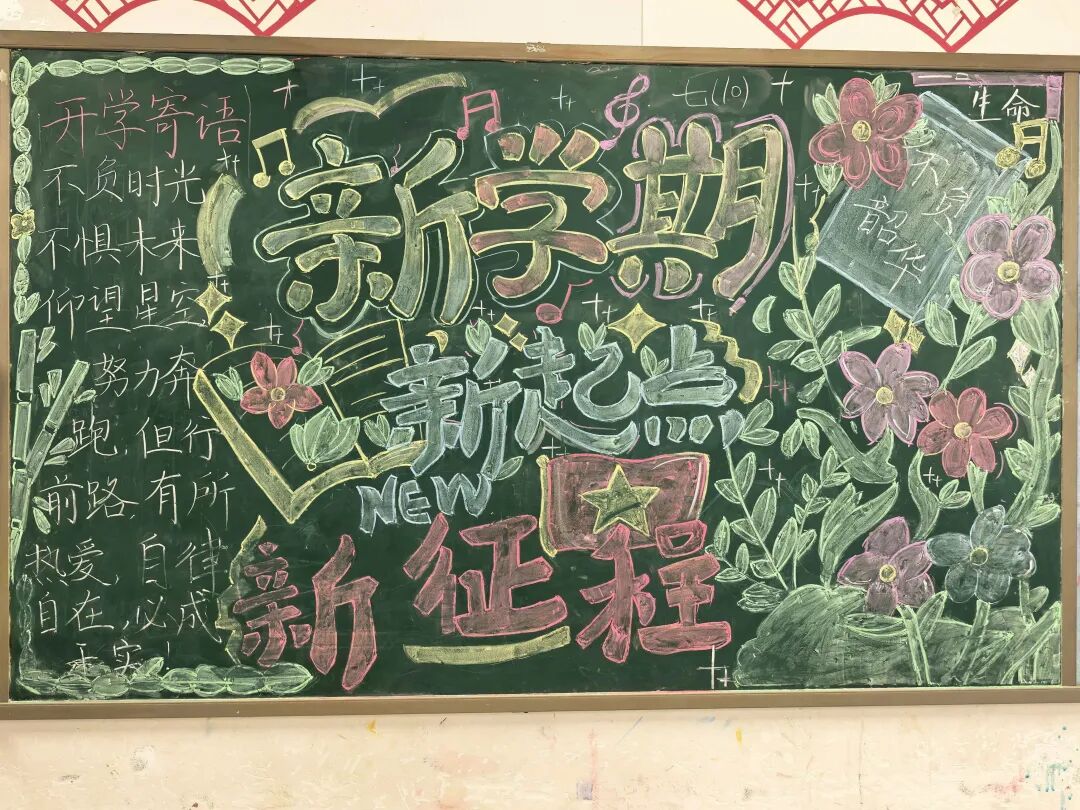 开学寄语
不负时光
不惧未来
仰望星空
努力奔
跑，但行
前路，有所
热爱，自律
自在，必成
七(10)
新学期
新起点
NEW
新征程
生命
不负
韶华